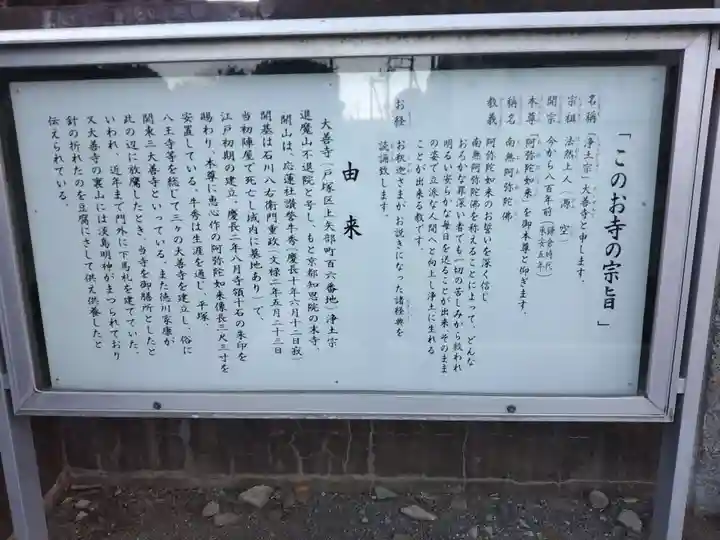 「このお寺の宗旨」
名稱 「浄土宗」大善寺と申します。
宗祖 法然上人（源空）
開宗 今から八百年前（鎌倉時代）（承安五年）
本尊 「阿弥陀如来」を御本尊と仰ぎます。
稱名 南無阿弥陀佛
教義 阿弥陀如来のお誓いを深く信じ
南無阿弥陀佛を称えることによって、どんな
おろかな罪深い者でも一切の苦しみから救われ
明るい安らかな毎日を送ることが出来、そのまま
の姿で立派な人間へと向上し浄土に生れる
ことが出来る教です。
お経 お釈迦さまがお説きになった諸経典を
読誦致します。
由来
大善寺（戸塚区上矢部町百六番地）浄土宗
進魔山不退院と号し、もと京都知恩院の末寺、
開山は、応蓮社讃誉牛秀（慶長十年六月十二日寂）
開基は石川八右衛門重政（文禄二年五月二十三日
当初陣屋で死亡し域内に墓地あり）で、
江戸初期の建立、慶長二年八月寺領十石の朱印を
賜わり、本尊に恵心作の阿弥陀如来像長三尺三寸を
安置している。牛秀は生涯を通し、平塚、
八王寺等を統じて三ヶの大善寺を建立し、俗に
関東三大善寺といっている。また徳川家康が
此の辺に放鷹したとき、当寺を御膳所としたと
いわれ、近年まで門外に下馬札を建てていた、
又大善寺の裏山には淡島明神がまつられており
針の折れたのを豆腐にさして供え供養したと
伝えられている。